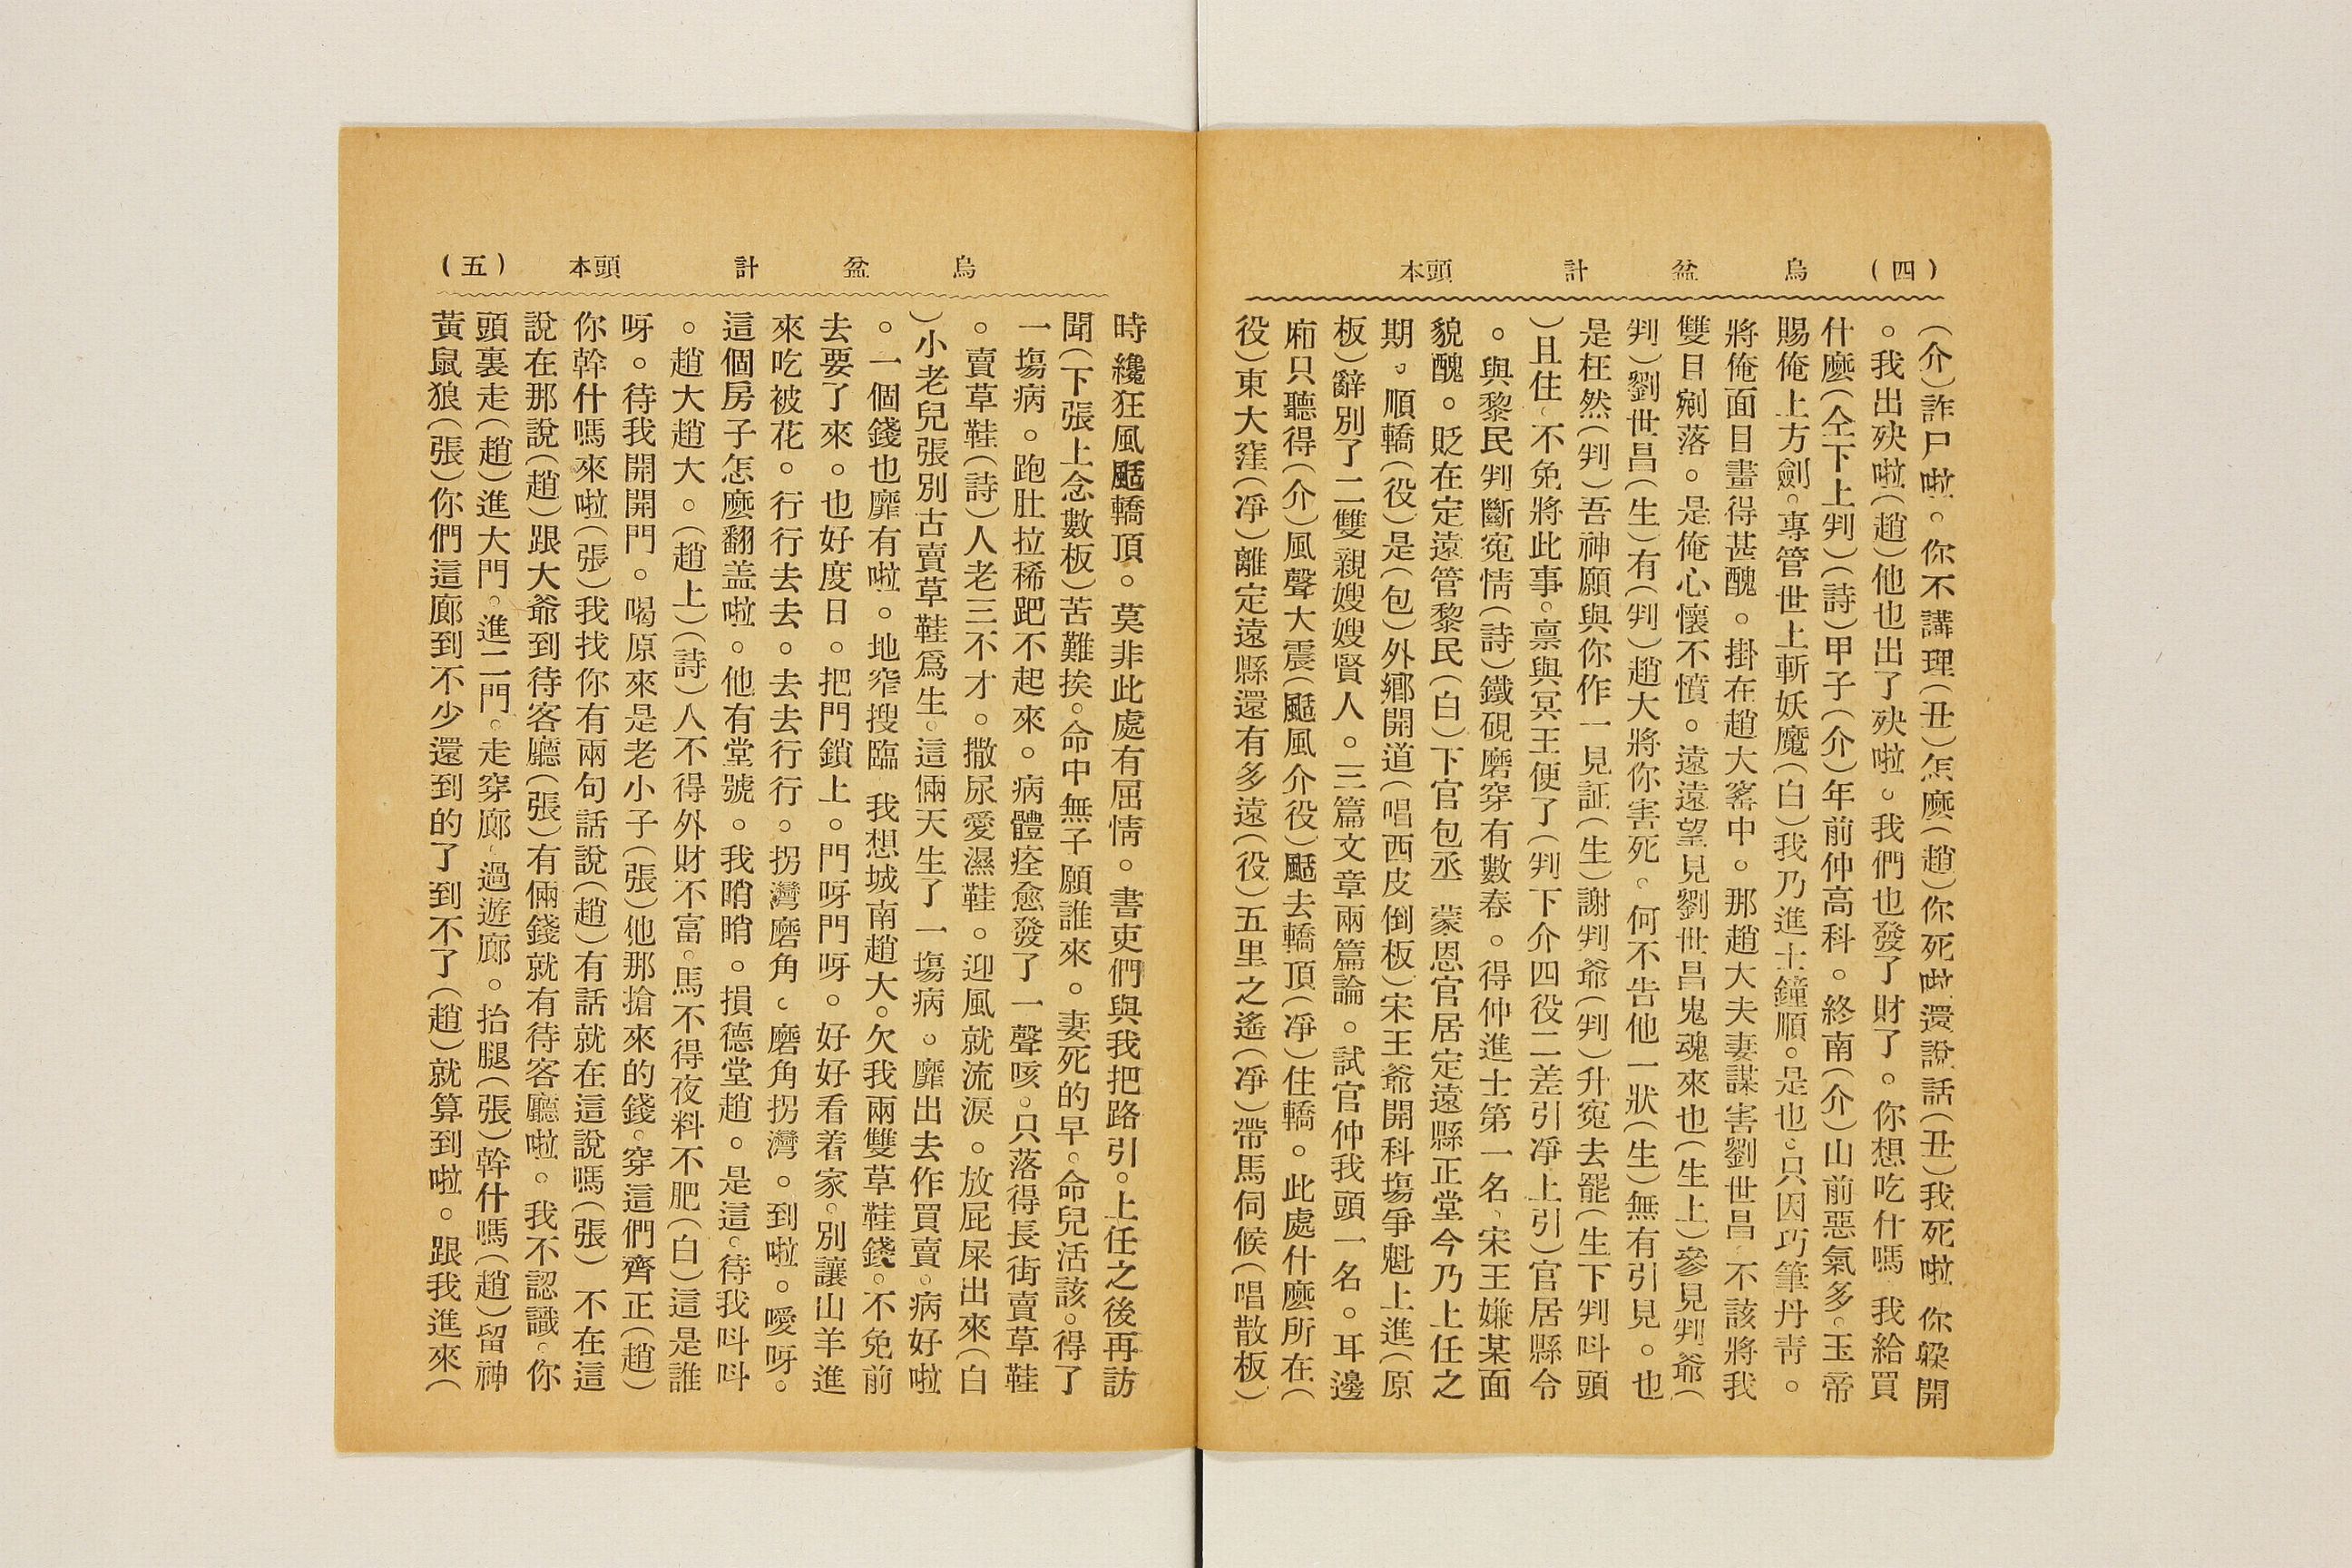 (四)　烏　盆　計　頭本
(介)詐尸啦。你不講理(丑)怎麽(趙)你死啦還說話(丑)我死啦 你躱開
。我出殃啦(趙)他也出了殃啦。我們也發了財了。你想吃什嗎 我給買
什麽(仝下上判)(詩)甲子(介)年前仲高科。終南(介)山前惡氣多。玉帝
賜俺上方劍。專管世上斬妖魔(白)我乃進士鐘順。是也。只因巧筆丹靑。
將俺面目畫得甚醜。掛在趙大窰中。那趙大夫妻謀害劉世昌 不該將我
雙目剜落。是俺心懷不憤。遠遠望見劉世昌鬼魂來也(生上)參見判爺(
判)劉世昌(生)有(判)趙大將你害死。何不告他一狀(生)無有引見。也
是枉然(判)吾神願與你作一見証(生)謝判爺(判)升寃去罷(生下判呌頭
)且住、不免將此事。禀與冥王便了(判下介四役二差引凈上引)官居縣令
。與黎民判斷寃情(詩)鐵硯磨穿有數春。得仲進士第一名、宋王嫌某面
貌醜。貶在定遠管黎民(白)下官包丞 蒙恩官居定遠縣正堂今乃上任之
期。順轎(役)是(包)外鄉開道(唱西皮倒板)宋王爺開科塲爭魁上進(原
板)辭別了二雙親嫂嫂賢人。三篇文章兩篇論。試官仲我頭一名。耳邊
廂只聽得(介)風聲大震(颳風介役)颳去轎頂(凈)住轎。此處什麽所在(
役)東大窪(凈)離定遠縣還有多遠(役)五里之遙(凈)帶馬伺候(唱散板)
烏　盆　計　頭本　(五)
時纔狂風颳轎頂。莫非此處有屈情。書吏們與我把路引。上任之後再訪
聞(下張上念數板)苦難挨。命中無子願誰來。妻死的早。命兒活該。得了
一塲病。跑肚拉稀跁不起來。病體痊愈發了一聲咳。只落得長街賣草鞋
。賣草鞋(詩)人老三不才。撒尿愛濕鞋。迎風就流淚。放屁屎出來(白
)小老兒張別古賣草鞋爲生。這倆天生了一塲病。靡出去作買賣。病好啦
。一個錢也靡有啦。地窄搜臨 我想城南趙大。欠我兩雙草鞋錢。不免前
去要了來。也好度日。把門鎖上。門呀門呀。好好看着家。別讓山羊進
來吃被花。行行去去。去去行行。拐灣磨角。磨角拐灣。到啦。噯呀。
這個房子怎麽翻盖啦。他有堂號。我睄睄。損德堂趙。是這。待我呌呌
。趙大趙大。(趙上)(詩)人不得外財不富。馬不得夜料不肥(白)這是誰
呀。待我開開門。喝原來是老小子(張)他那搶來的錢。穿這們齊正(趙)
你幹什嗎來啦(張)我找你有兩句話說(趙)有話就在這說嗎(張) 不在這
說在那說(趙)跟大爺到待客廳(張)有倆錢就有待客廳啦。我不認識。你
頭裏走(趙)進大門。進二門。走穿廊、過遊廊。抬腿(張)幹什嗎(趙)留神
黃鼠狼(張)你們這廊到不少還到的了到不了(趙)就算到啦。跟我進來(